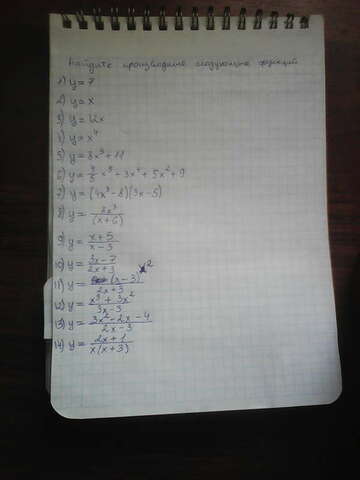 Найдите производные следующих функций
1) y = 7
2) y = x
3) y = 12x
4) y = x⁴
5) y = 8x³ + 11
6) y = 4/5 x⁵ - 3x⁴ + 5x² + 9
7) y = (4x³ - 8)(3x - 5)
8) y = 2x³/(x + 6)
9) y = x + 5/x - 3
10) y = 3x - 7/2x + 3
11) y = (x - 3)²/2x + 3
12) y = x³ + 3x²/3x - 3
13) y = 3x² - 2x - 4/2x - 3
14) y = 2x + 1/x(x + 3)